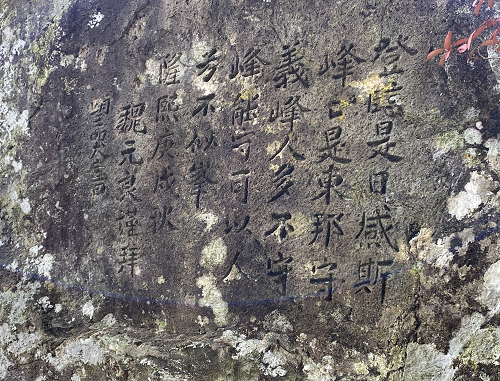 登臨是日感斯
峰已是東邦守
義峰人多不守
峰能守可以人
方不似峯
隆熙庚戌秋
魏元謹拜